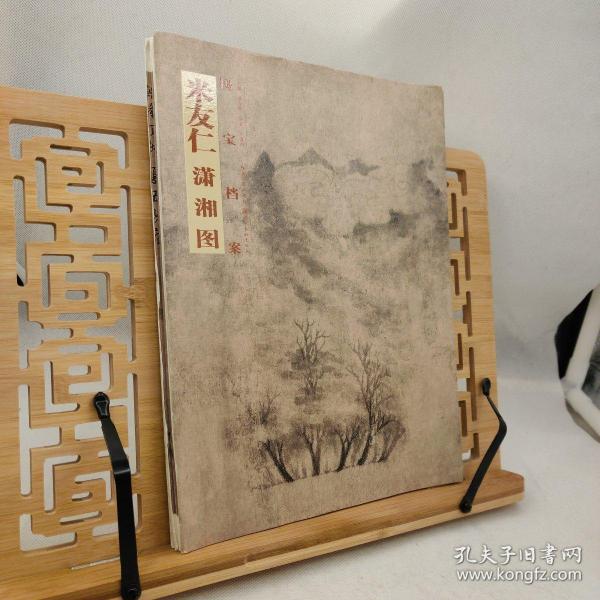 米友仁
潇湘图
国宝档案
孔夫子旧书网
www.kongfz.com